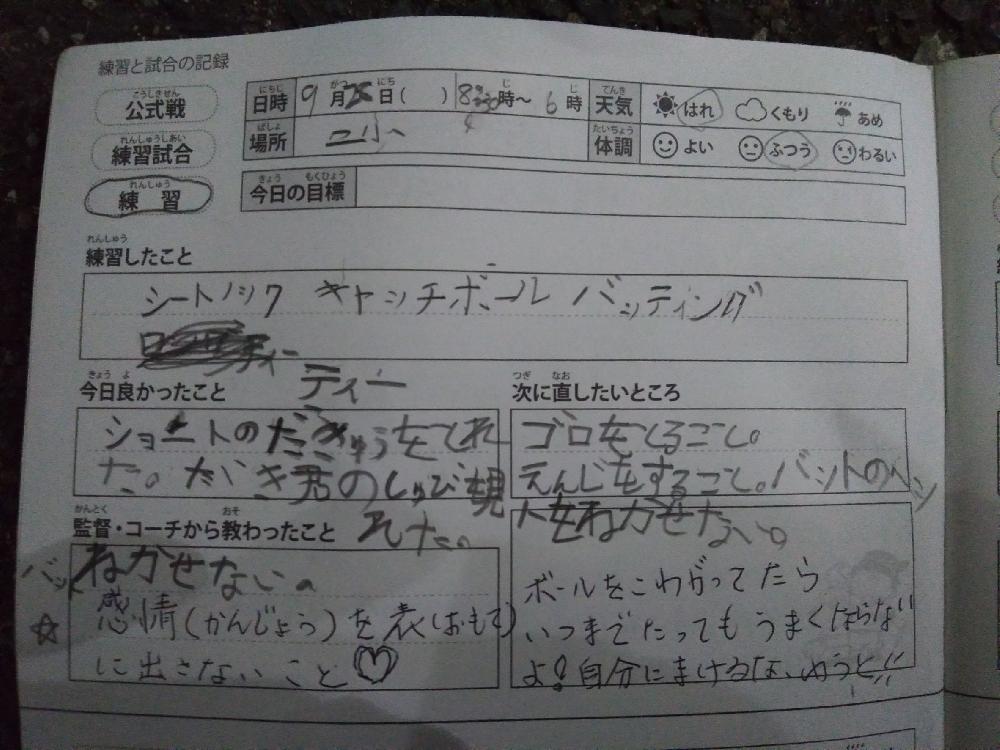 練習と試合の記録
公式戦 こうしきせん
練習試合 れんしゅうしあい
練習 れんしゅう
日時 にちじ 9月 がつ 日 にち ( ) 時 じ 〜 6時 じ
天気 てんき はれ くもり あめ
場所 ばしょ 二小
体調 たいちょう よい ふつう わるい
今日の目標 きょう もくひょう
練習したこと れんしゅう
シートノック キャッチボール バッティング
ティー
今日良かったこと きょう よ
ショートのだきゅうをとれ
た。だいき君のしゅび見
れた。
次に直したいところ つぎ なお
ゴロをとること。
えんじをすること。バットのヘッ
トをねかせない。
監督・コーチから教わったこと かんとく おそ
バットねかせない。
☆感情(かんじょう)を表(おもて)
に出さないこと♡
ボールをこわがってたら
いつまでたってもうまくならない
よ!自分にまけるな、ゆうと!!